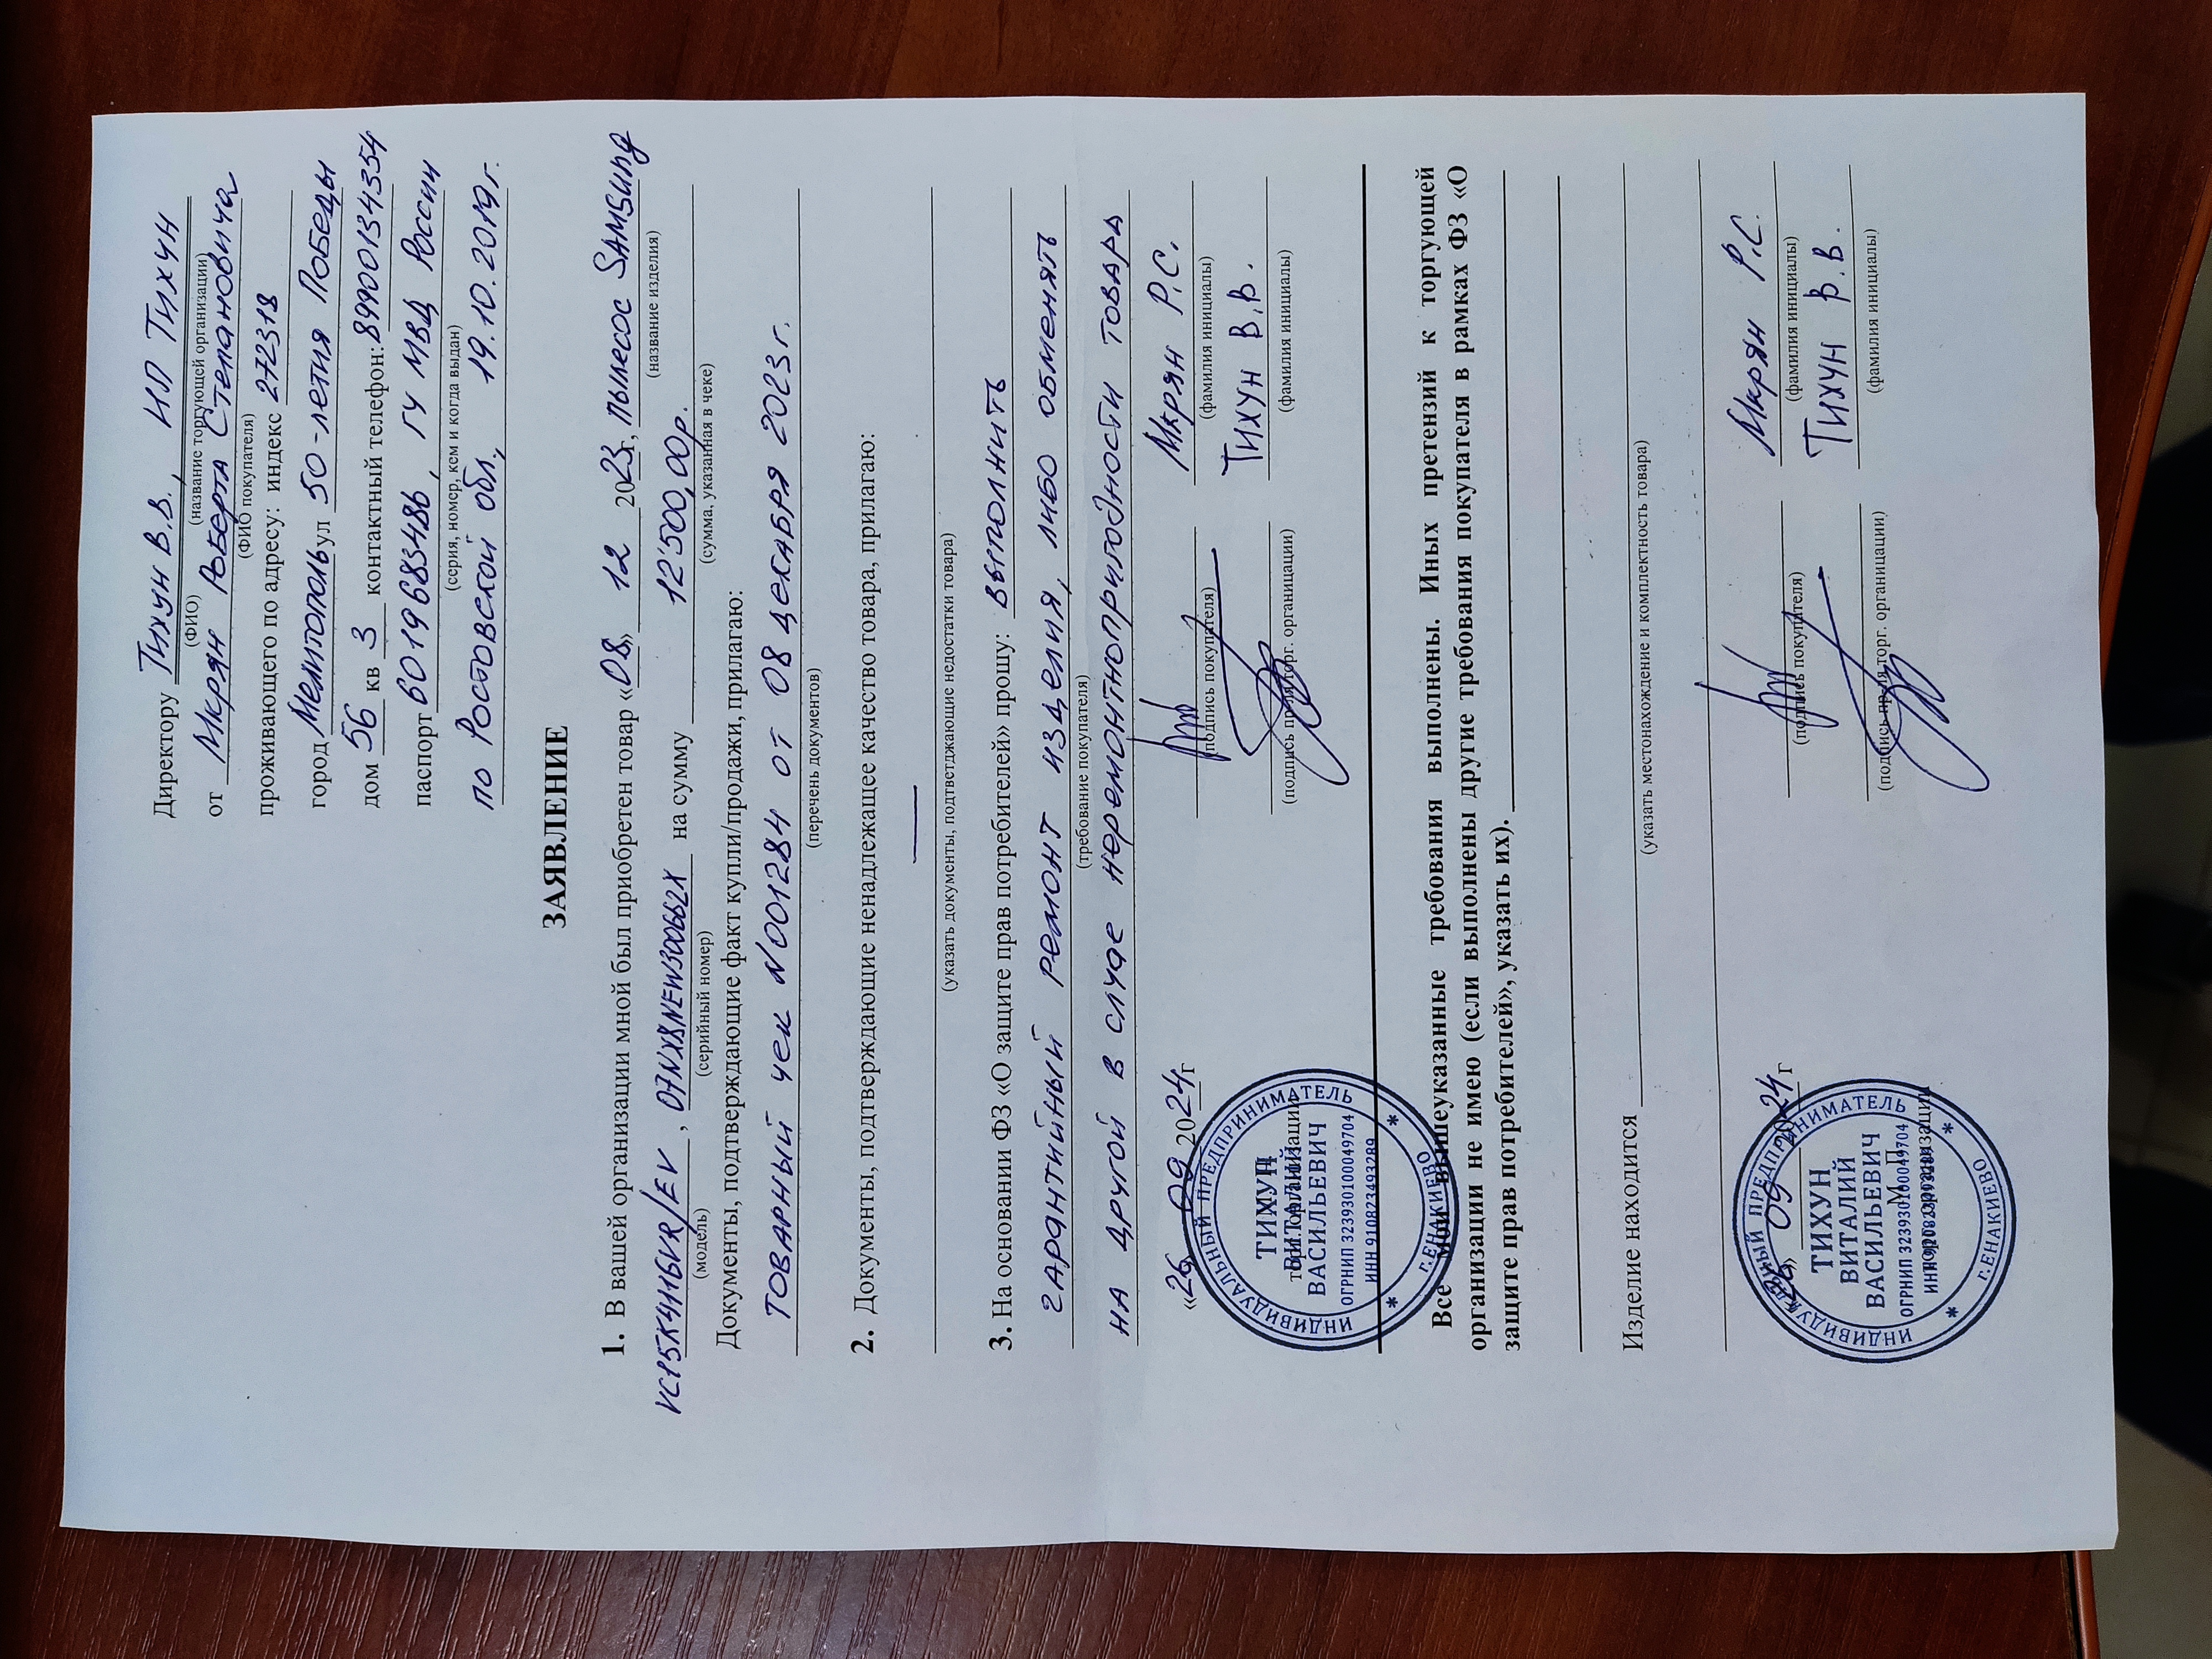 Директору Тихун В.В., ИП Тихун
(ФИО) (название торгующей организации)
от Мкрян Роберта Степановича
(ФИО покупателя)
проживающего по адресу: индекс 272318
город Мелитополь ул 50-летия Победы
дом 56 кв 3 контактный телефон: 89900134354
паспорт 6019683486, ГУ МВД России
(серия, номер, кем и когда выдан)
по Ростовской обл., 19.10.2019г.
ЗАЯВЛЕНИЕ
1. В вашей организации мной был приобретен товар «08» 12 2023г, пылесос SAMSung
(название изделия)
VC15K4116VR/EV, 07NX8NEW300662X на сумму 12'500,00р.
(модель) (серийный номер) (сумма, указанная в чеке)
Документы, подтверждающие факт купли/продажи, прилагаю:
Товарный чек N001284 от 08 декабря 2023г.
(перечень документов)
2. Документы, подтверждающие ненадлежащее качество товара, прилагаю:
—
(указать документы, подтветджающие недостатки товара)
3. На основании ФЗ «О защите прав потребителей» прошу: выполнить
гарантийный ремонт изделия, либо обменять
(требование покупателя)
на другой в случае неремонтнопригодности товара
«26» 09 2024г Мкрян Р.С.
(подпись покупателя) (фамилия инициалы)
Тихун В.В.
(подпись пр-ля торг. органицации) (фамилия инициалы)
торг. организации
ИНДИВИДУАЛЬНЫЙ ПРЕДПРИНИМАТЕЛЬ
ТИХУН
ВИТАЛИЙ
ВАСИЛЬЕВИЧ
ОГРНИП 323930100049704
ИНН 910823493289
* г.ЕНАКИЕВО *
Все мои вышеуказанные требования выполнены. Иных претензий к торгующей
организации не имею (если выполнены другие требования покупателя в рамках ФЗ «О
защите прав потребителей», указать их).
Изделие находится
(указать местонахождение и комплектность товара)
«26» 09 2024 г Мкрян Р.С.
(подпись покупателя) (фамилия инициалы)
Тихун В.В.
(подпись пр-ля торг. органицации) (фамилия инициалы)
торг. организации
ИНДИВИДУАЛЬНЫЙ ПРЕДПРИНИМАТЕЛЬ
ТИХУН
ВИТАЛИЙ
ВАСИЛЬЕВИЧ
ОГРНИП 323930100049704
* г.ЕНАКИЕВО *